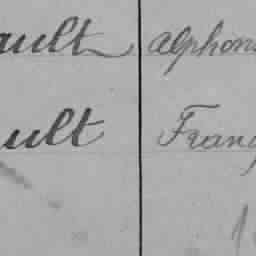 ault alphon
ault Franç